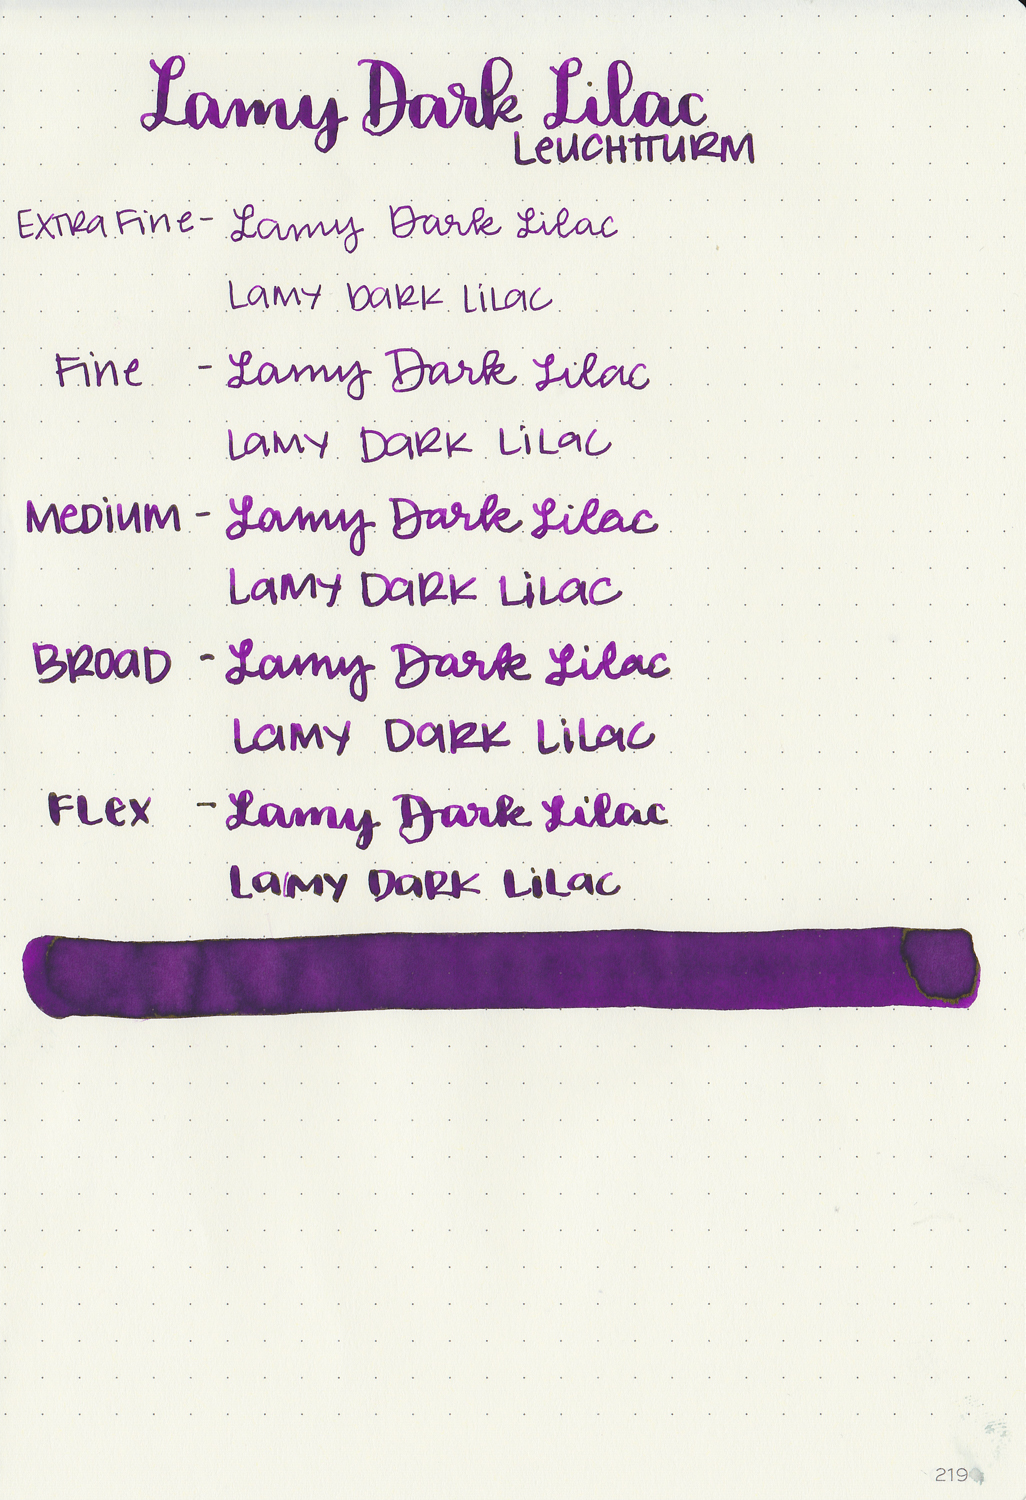 Lamy Dark Lilac
LEUCHTTURM
EXTRA FINE - Lamy Dark Lilac
LAMY DARK LILAC
Fine - Lamy Dark Lilac
LAMY DARK LILAC
MEDIUM - Lamy Dark Lilac
LAMY DARK LILAC
BROAD - Lamy Dark Lilac
LAMY DARK LILAC
FLEX - Lamy Dark Lilac
LAMY DARK LILAC
219